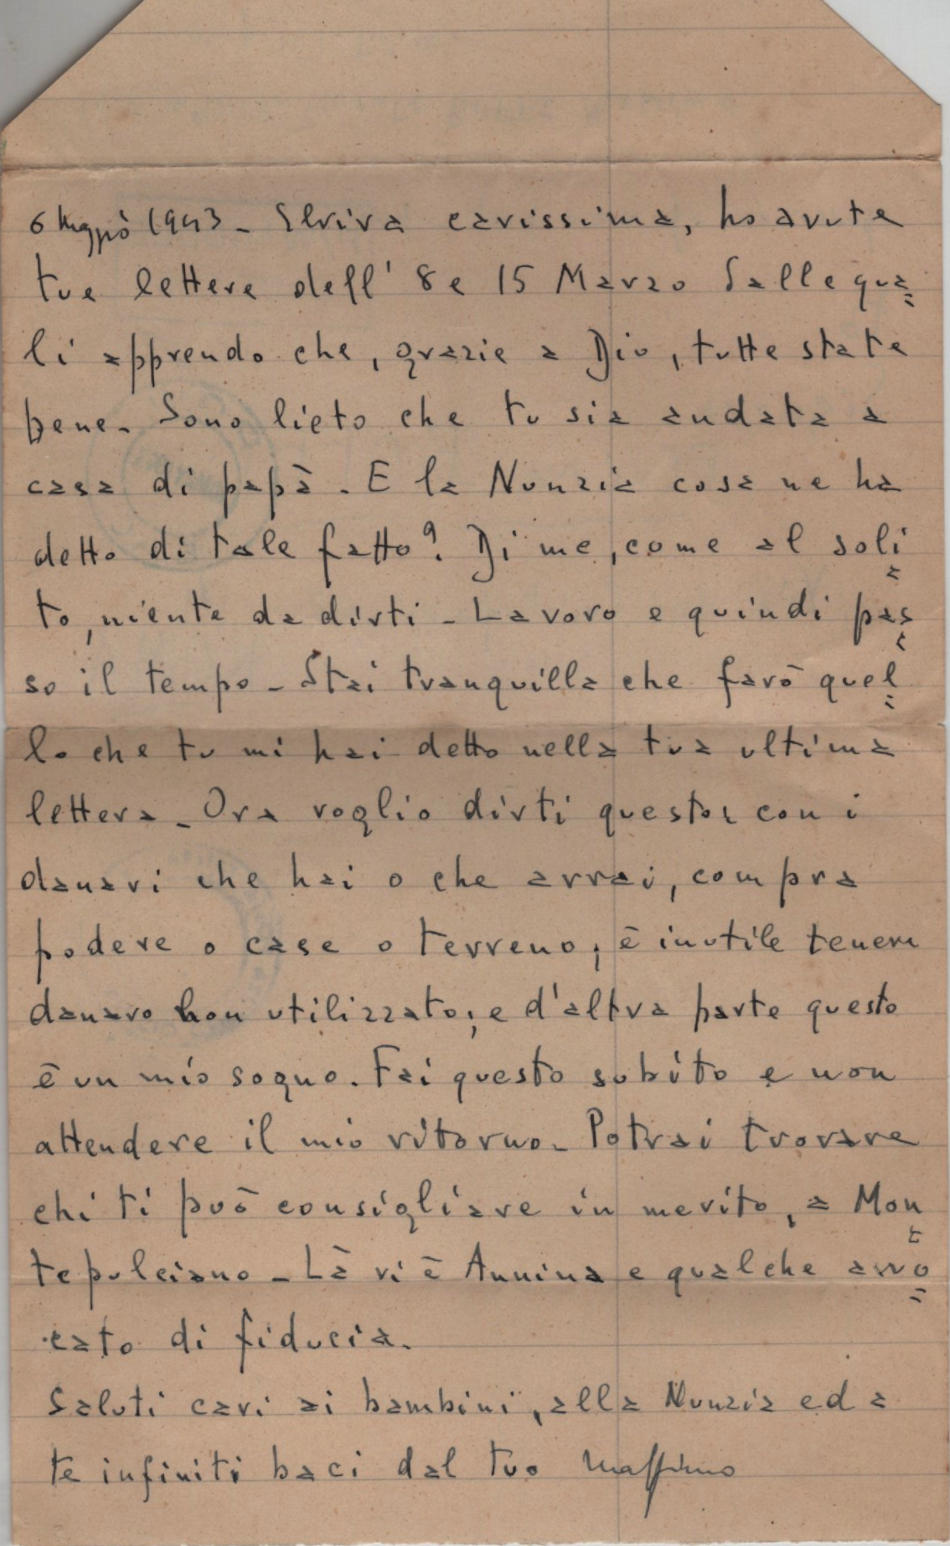 6 Maggiò 1943 - Elvira carissima, ho avute
tue lettere dell' 8 e 15 Marzo dalle qua=
li apprendo che, grazie a Dio, tutte state
bene. Sono lieto che tu sia andata a
casa di papà. E la Nunzia cosa ne ha
detto di tale fatto? Di me, come al soli=
to, niente da dirti - Lavoro e quindi pas=
so il tempo - Stai tranquilla che farò quel=
lo che tu mi hai detto nella tua ultima
lettera - Ora voglio dirti questo: con i
danari che hai o che avrai, compra
podere o case o terreno; è inutile tenere
danaro non utilizzato; e d'altra parte questo
è un mio sogno. Fai questo subito e non
attendere il mio ritorno - Potrai trovare
chi ti può consigliare in merito, a Mon=
tepulciano - Là vi è Annina e qualche avvo=
cato di fiducia.
Saluti cari ai bambini, alla Nunzia ed a
te infiniti baci dal tuo Massimo